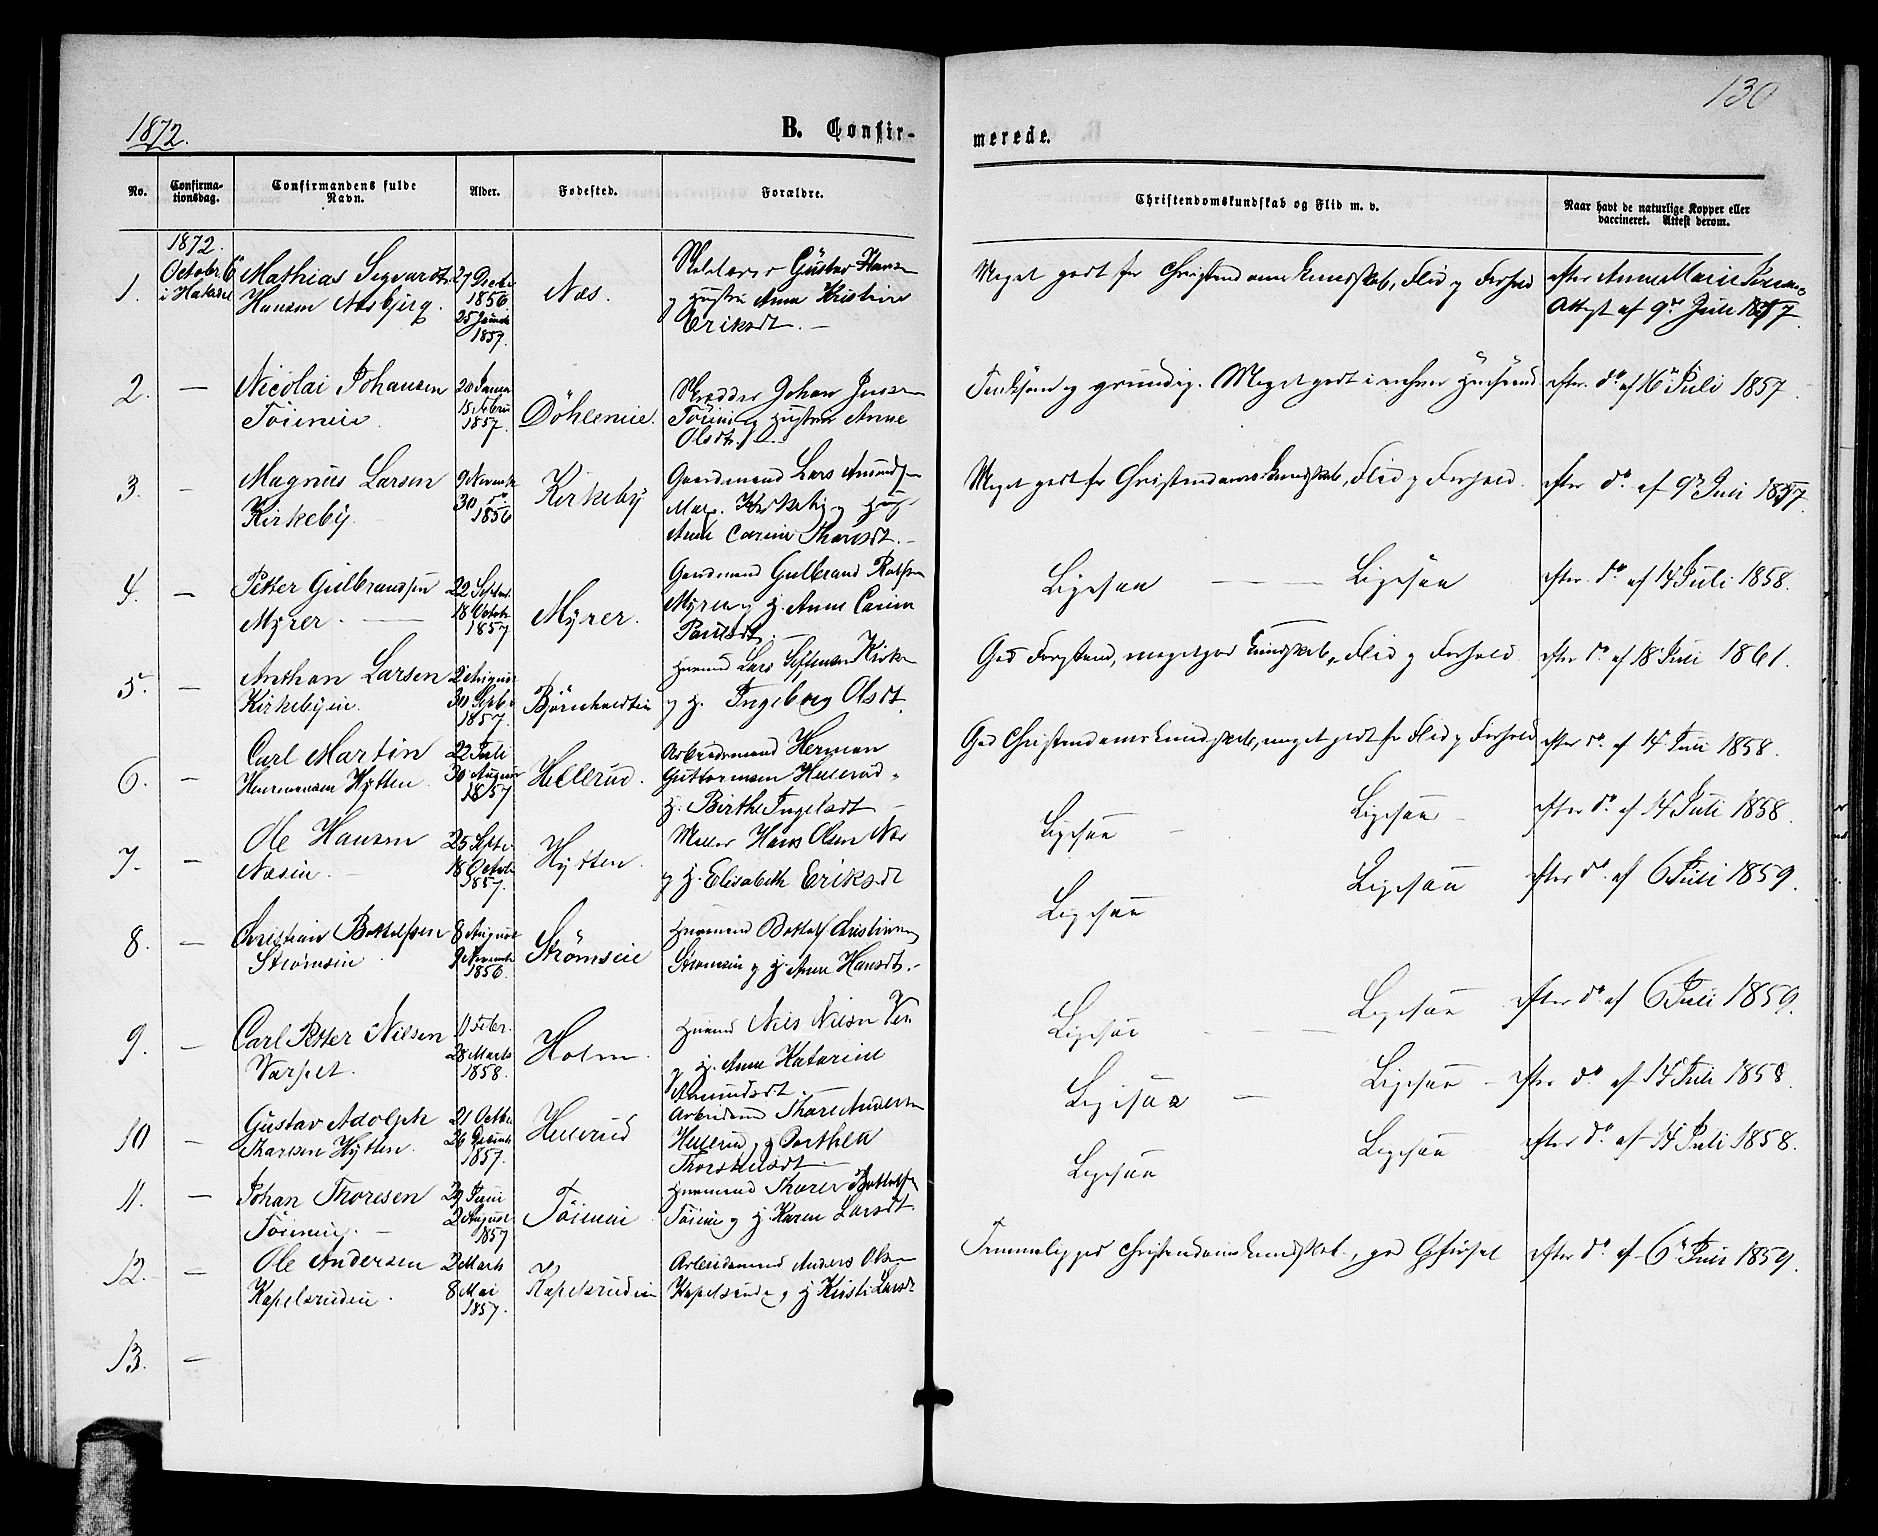 130
1872.
B. Confir-
merede.
No.
Confirma-
tionsdag.
Confirmandens fulde
Navn.
Alder.
Fødested.
Forældre.
Christendomskundskab og Flid m. v.
Naar havt de naturlige Kopper eller
vaccineret. Attest derom.
1.
1872.
Octobr. 6
i Hakadal
Mathias Segvardt
Hansen Næsbjerg.
27 Decbr
1856
25 Januar
1857.
Næs.
Gustav Hansen
og Hustru Anne Kristine
Eriksdt. —
Meget godt for Christendomskundskab, Flid og Forhold
efter Anne Marie
Attest af 9de Juli 1857.
2.
—
Nicolai Johansen
Töieneie
20 Januar
15 Febru
1857.
Döhleneie.
Skrædder Johan Jensen
Töiene og Hustru Anne
Olsdt.
Tænksom og grundig. Meget godt i enhver Henseende
efter do af 16de Juli 1857.
3.
—
Magnus Larsen
Kirkeby.
9 Novembr
30 do
1856
Kirkeby
Gaardmand Lars Amunds
Kirkeby og Hust.
Anne Carine Thoresdt. —
Meget godt for Christendomskundskab, Flid og Forhold.
efter do af 9de Juli 1857.
4.
—
Petter Gulbrandsen
Myrer. —
22 Septbr.
18 Octobr
1857
Myrer.
Gaardmand Gulbrand
Myrer og H. Anne Carine
Paulsdt. —
Ligesaa — — Ligesaa
efter do af 14 Juli 1858.
5.
—
Anthon Larsen
Kirkebyeie.
2 August
30 Septbr
1857.
Björnholdteie
Husmand Lars
og H. Ingeborg Olsdt.
God Forstand, meget god Kundskab, Flid og Forhold
efter do af 18 Juli 1861.
6.
—
Carl Martin
Hermansen Hytten.
22 Juli
30 August
1857
Hellerud.
Arbeidsmand Herman
Guttormsen Hellerud
H. Birthe Ingelsdt —
God Christendomskundskab, meget godt for Flid og Forhold
efter do af 14 Juli 1858.
7.
—
Ole Hansen
Næseie. —
25 Septbr
18 Octobr
1857.
Hytten.
Møller Hans Olsen Næs
og H. Elisabeth Eriksdt
Ligesaa — Ligesaa —
efter do af 14 Juli 1858.
8.
—
Christian Bottolfsen
Strömseie.
8 August
9 Novembr
1856.
Strömseie
Husmand Bottolf Christiansen
Strömseie og H. Anne Hansdt. —
Ligesaa Ligesaa
efter do af 6 Juli 1859.
9.
—
Carl Petter Nilsen
Varpet.
11 Febr.
28 Marts
1858.
Holm.
Husmand Nils Nilsen
og H. Anne Katarine
Amundsdt.
Ligesaa — — Ligesaa
efter do af 6 Juli 1859.
10
—
Gustav Adolph
Thoresen Hytten.
21 Octbr
26 Decembr
1857.
Hellerud
Arbeidsmand Thore Andersen
Hellerud og Dorthea
Thorstensdt —
Ligesaa — Ligesaa —
efter do af 14 Juli 1858.
11.
—
Johan Thoresen
Töieneie. —
29 Juni
2 August
1857
Töieneie
Husmand Thorer Bottolfsen
Töieneie og H. Karen Larsdt.
Ligesaa Ligesaa
efter do af 14 Juli 1858.
12.
—
Ole Andersen
Kapelsrudeie.
2 Marts
8 Mai
1857.
Kapelsrudeie
Arbeidsmand Anders Olsen
Kapelsrudeie og H. Kirsti Larsdt
Temmelig god Christendomskundskab, god Opførsel
efter do af 6 Juli 1859.
13.
—